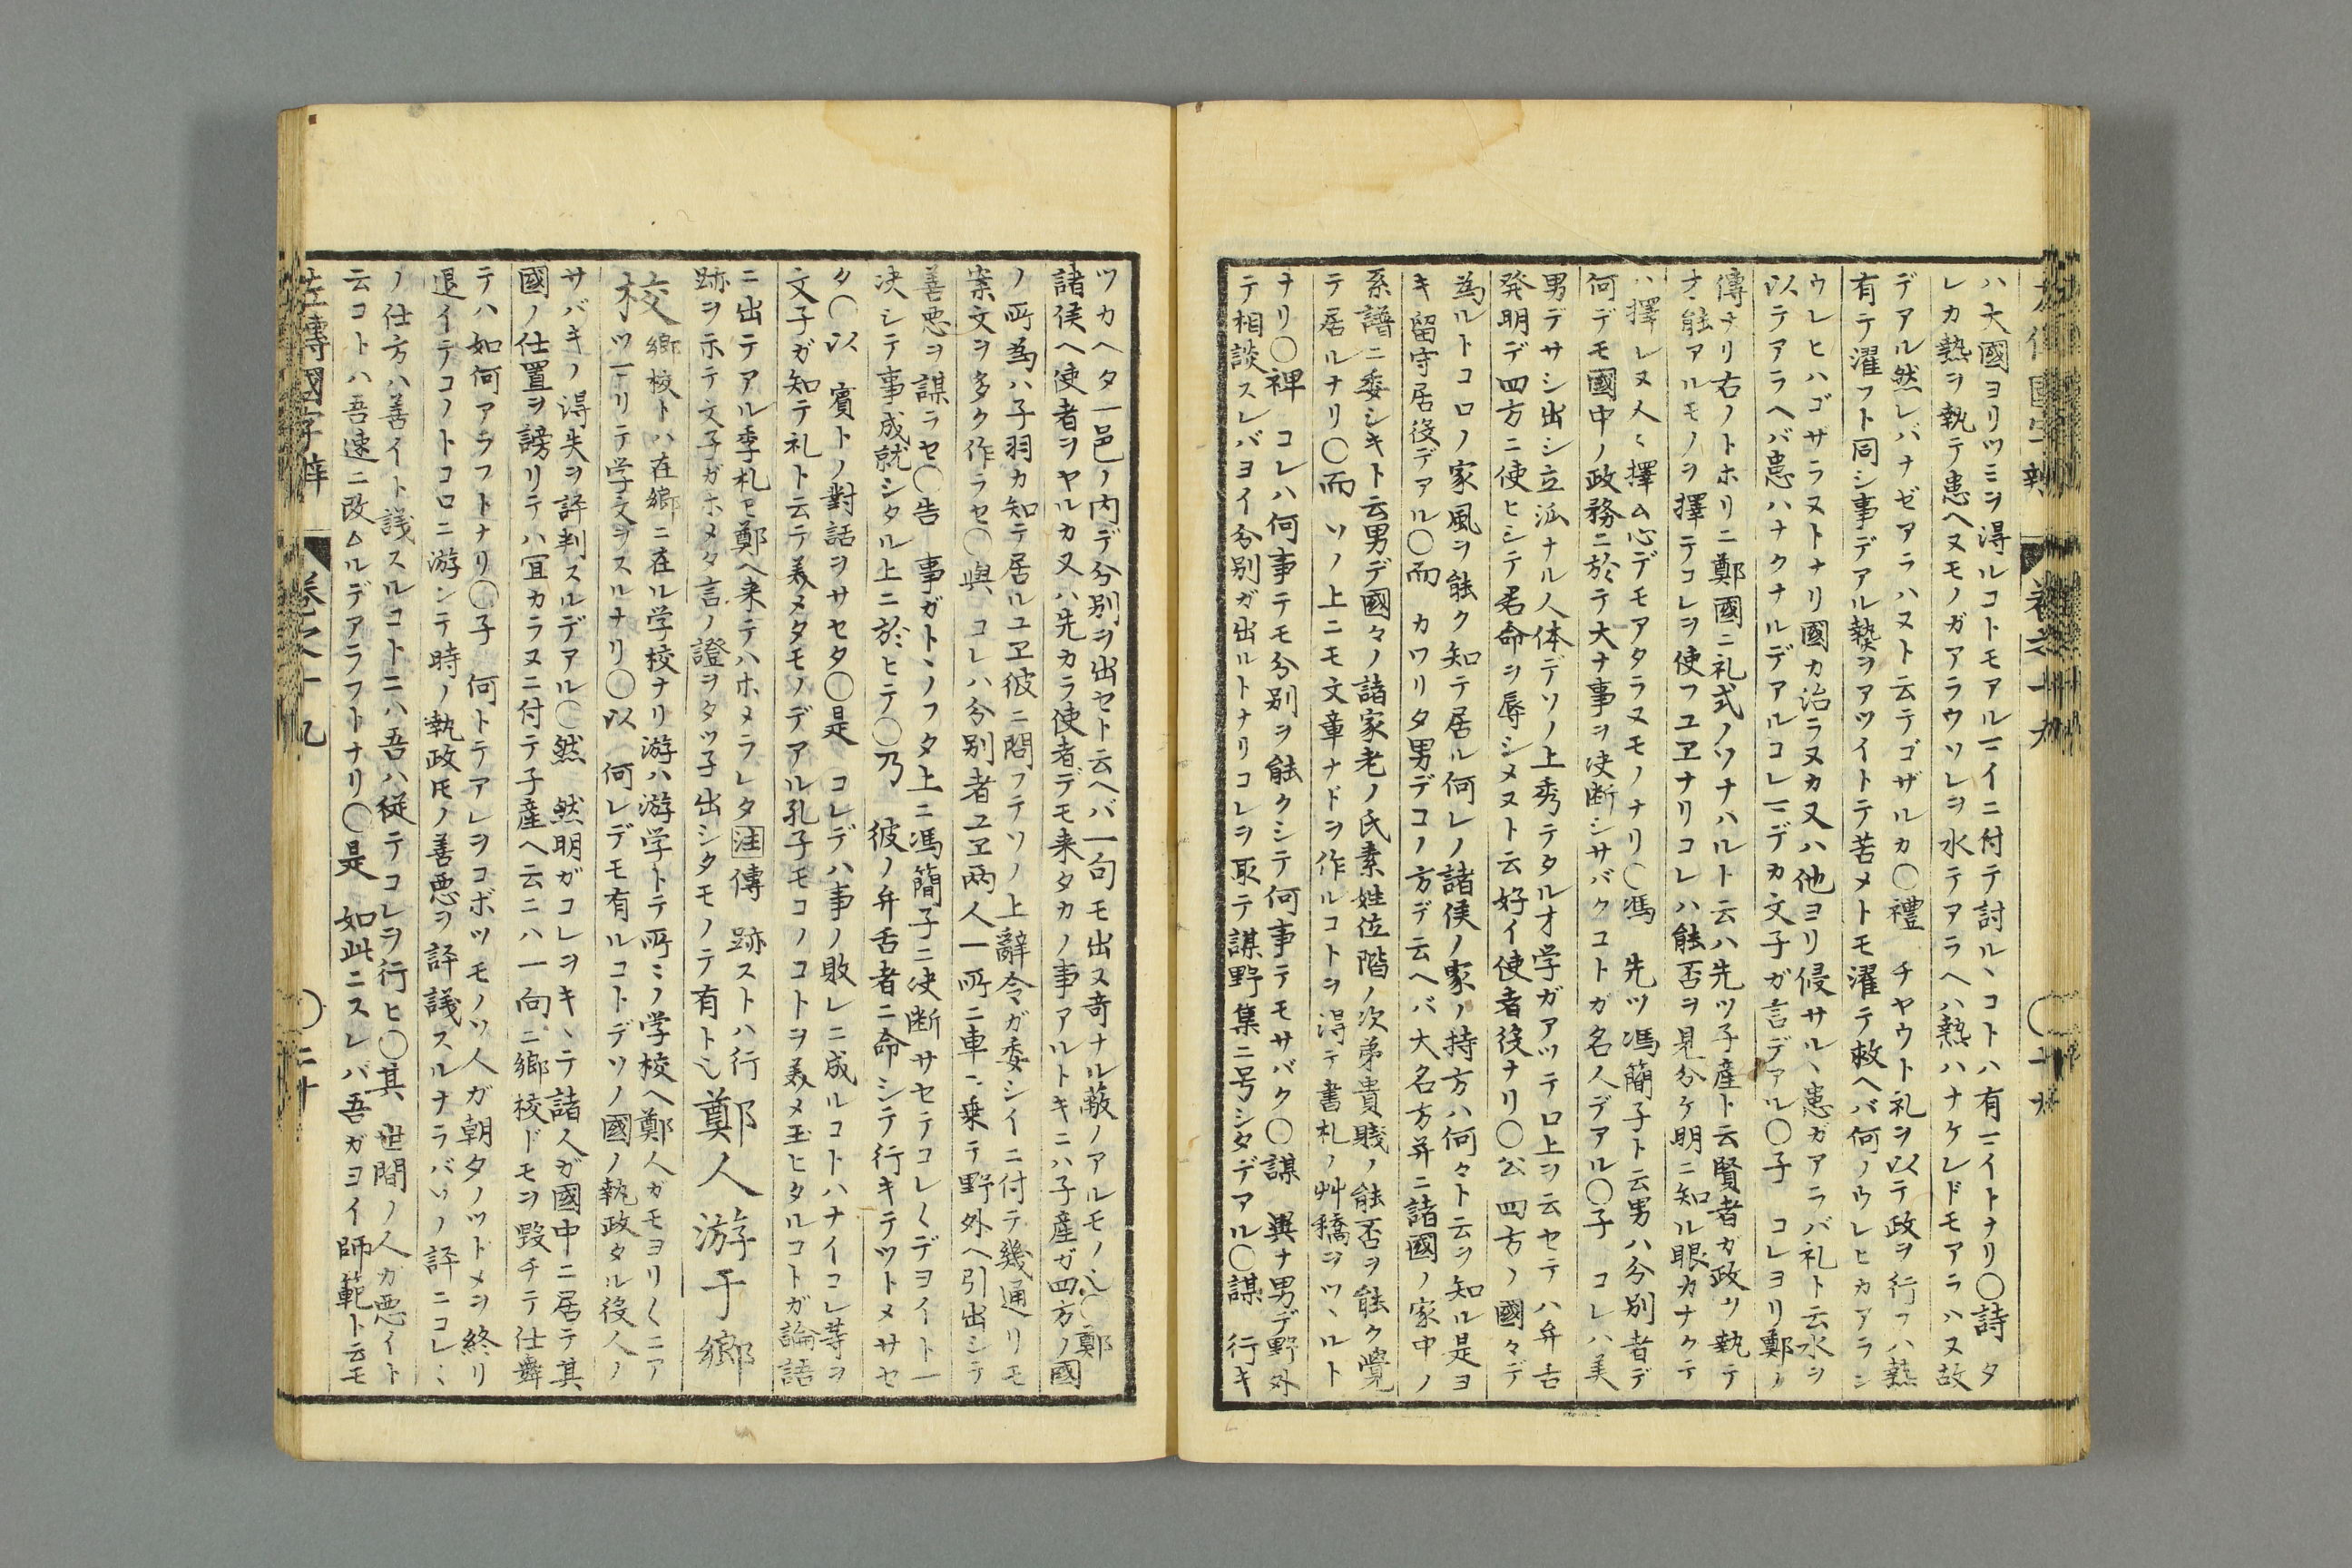 ハ大國ヨリツミヲ得ルコトモアルマイニ付テ討ルヽコトハ有マイトナリ〇詩 タ
レカ熱ヲ執テ患ヘヌモノガアラウソレヲ水テアラヘハ熱ハナケレドモアラハヌ故
デアル然レバナゼアラハヌト云テゴザルカ〇禮 チヤウト礼ヲ以テ政ヲ行フハ熱
有テ濯フト同シ事デアル熱ヲアツイトテ苦メトモ濯テ救ヘバ何ノウレヒカアラン
ウレヒハゴサラヌトナリ國カ治ラヌカ又ハ他ヨリ侵サルヽ患ガアラバ礼ト云水ヲ
以テアラヘバ患ハナクナルデアルコレマデカ文子ガ言デアル〇子 コレヨリ鄭ノ
傳ナリ右ノトホリニ鄭國ニ礼式ノソナハルト云ハ先ツ子產ト云賢者ガ政ヲ執テ
才能アルモノヲ擇テコレヲ使フユヱナリコレハ能否ヲ見分ケ明ニ知ル眼カナクテ
ハ擇レヌ人ヽ擇ム心デモアタラヌモノナリ〇馮 先ツ馮簡子ト云男ハ分別者デ
何デモ國中ノ政務ニ於テ大ナ事ヲ决断シサバクコトガ名人デアル〇子 コレハ美
男デサシ出シ立派ナル人体デソノ上秀テタル才学ガアツテロ上ヲ云セテハ弁舌
発明デ四方ニ使ヒシテ君命ヲ辱シメヌト云好イ使者役ナリ〇公 四方ノ國々デ
為ルトコロノ家風ヲ能ク知テ居ル何レノ諸侯ノ家ノ持方ハ何々ト云ヲ知ル是ヨ
キ留守居役デアル〇而 カワリタ男デコノ方デ云ヘバ大名方并ニ諸國ノ家中ノ
系譜ニ委シキト云男デ國々ノ諸家老ノ氏素姓位階ノ次弟貴賎ノ能否ヲ能ク覺
テ居ルナリ〇而 ソノ上ニモ文章ナドヲ作ルコトヲ得テ書札ノ艸稿ヲツヽルト
ナリ〇裨 コレハ何事テモ分別ヲ能クシテ何事テモサバク〇謀 異ナ男デ野外
テ相談スレバヨイ分別ガ出ルトナリコレヲ取テ謀野集ニ号シタデアル〇謀 行キ
ツカヘタ一邑ノ内デ分別ヲ出セト云ヘバ一句モ出ヌ竒ナル蔽ノアルモノ也〇鄭
諸侯ヘ使者ヲヤルカ又ハ先カラ使者デモ来タカノ事アルトキニハ子產ガ四方ノ國
ノ所為ハ子羽カ知テ居ルユヱ彼ニ問フテソノ上辭令ガ委シイニ付テ幾通リモ
案文ヲ多ク作ラセ〇與 コレハ分別者ユヱ両人一所ニ車ニ乗テ野外ヘ引出シテ
善悪ヲ謀ラセ〇告 事ガトヽノフタ上ニ馮簡子ニ决断サセテコレ〱デヨイト一
决シテ事成就シタル上ニ於ヒテ〇乃 彼ノ弁舌者ニ命シテ行キテツトメサセ
タ〇以 賓トノ對話ヲサセタ〇是 コレデハ事ノ敗レニ成ルコトハナイコレ等ヲ
文子ガ知テ礼ト云テ羙メタモノデアル孔子モコノコトヲ羙メ玉ヒタルコトガ論語
ニ出テアル季札モ鄭ヘ来テハホメラレタ 注 傳 跡ストハ行
跡ヲ示テ文子ガホメタ言ノ證ヲタツ子出シタモノテ有ト也 鄭人游于鄉
校 鄉校トハ在鄉ニ在ル学校ナリ游ハ游学トテ所ミノ学校ヘ鄭人ガモヨリ〱ニア
ツマリテ学文ヲスルナリ〇以 何レデモ有ルコトデソノ國ノ執政タル役人ノ
サバキノ得失ヲ評判スルデアル〇然 然明ガコレヲキヽテ諸人ガ國中ニ居テ其
國ノ仕置ヲ謗リテハ冝カラヌニ付テ子產ヘ云ニハ一向ニ鄉校ドモヲ毀チテ仕舞
テハ如何アラフトナリ〇子 何トテアレヲコボツモノソ人ガ朝タノツトメヲ終リ
退イテコノトコロニ游ンテ時ノ執政氏ノ善悪ヲ評議スルナラバソノ評ニコレヽ
ノ仕方ハ善イト議スルコトニハ吾ハ従テコレヲ行ヒ〇其 世間ノ人カ悪イト
云コトハ吾速ニ改ムルデアラフトナリ〇是 如此ニスレバ吾ガヨイ師範ト云モ
左傳國字辯 巻之十九 〇二十